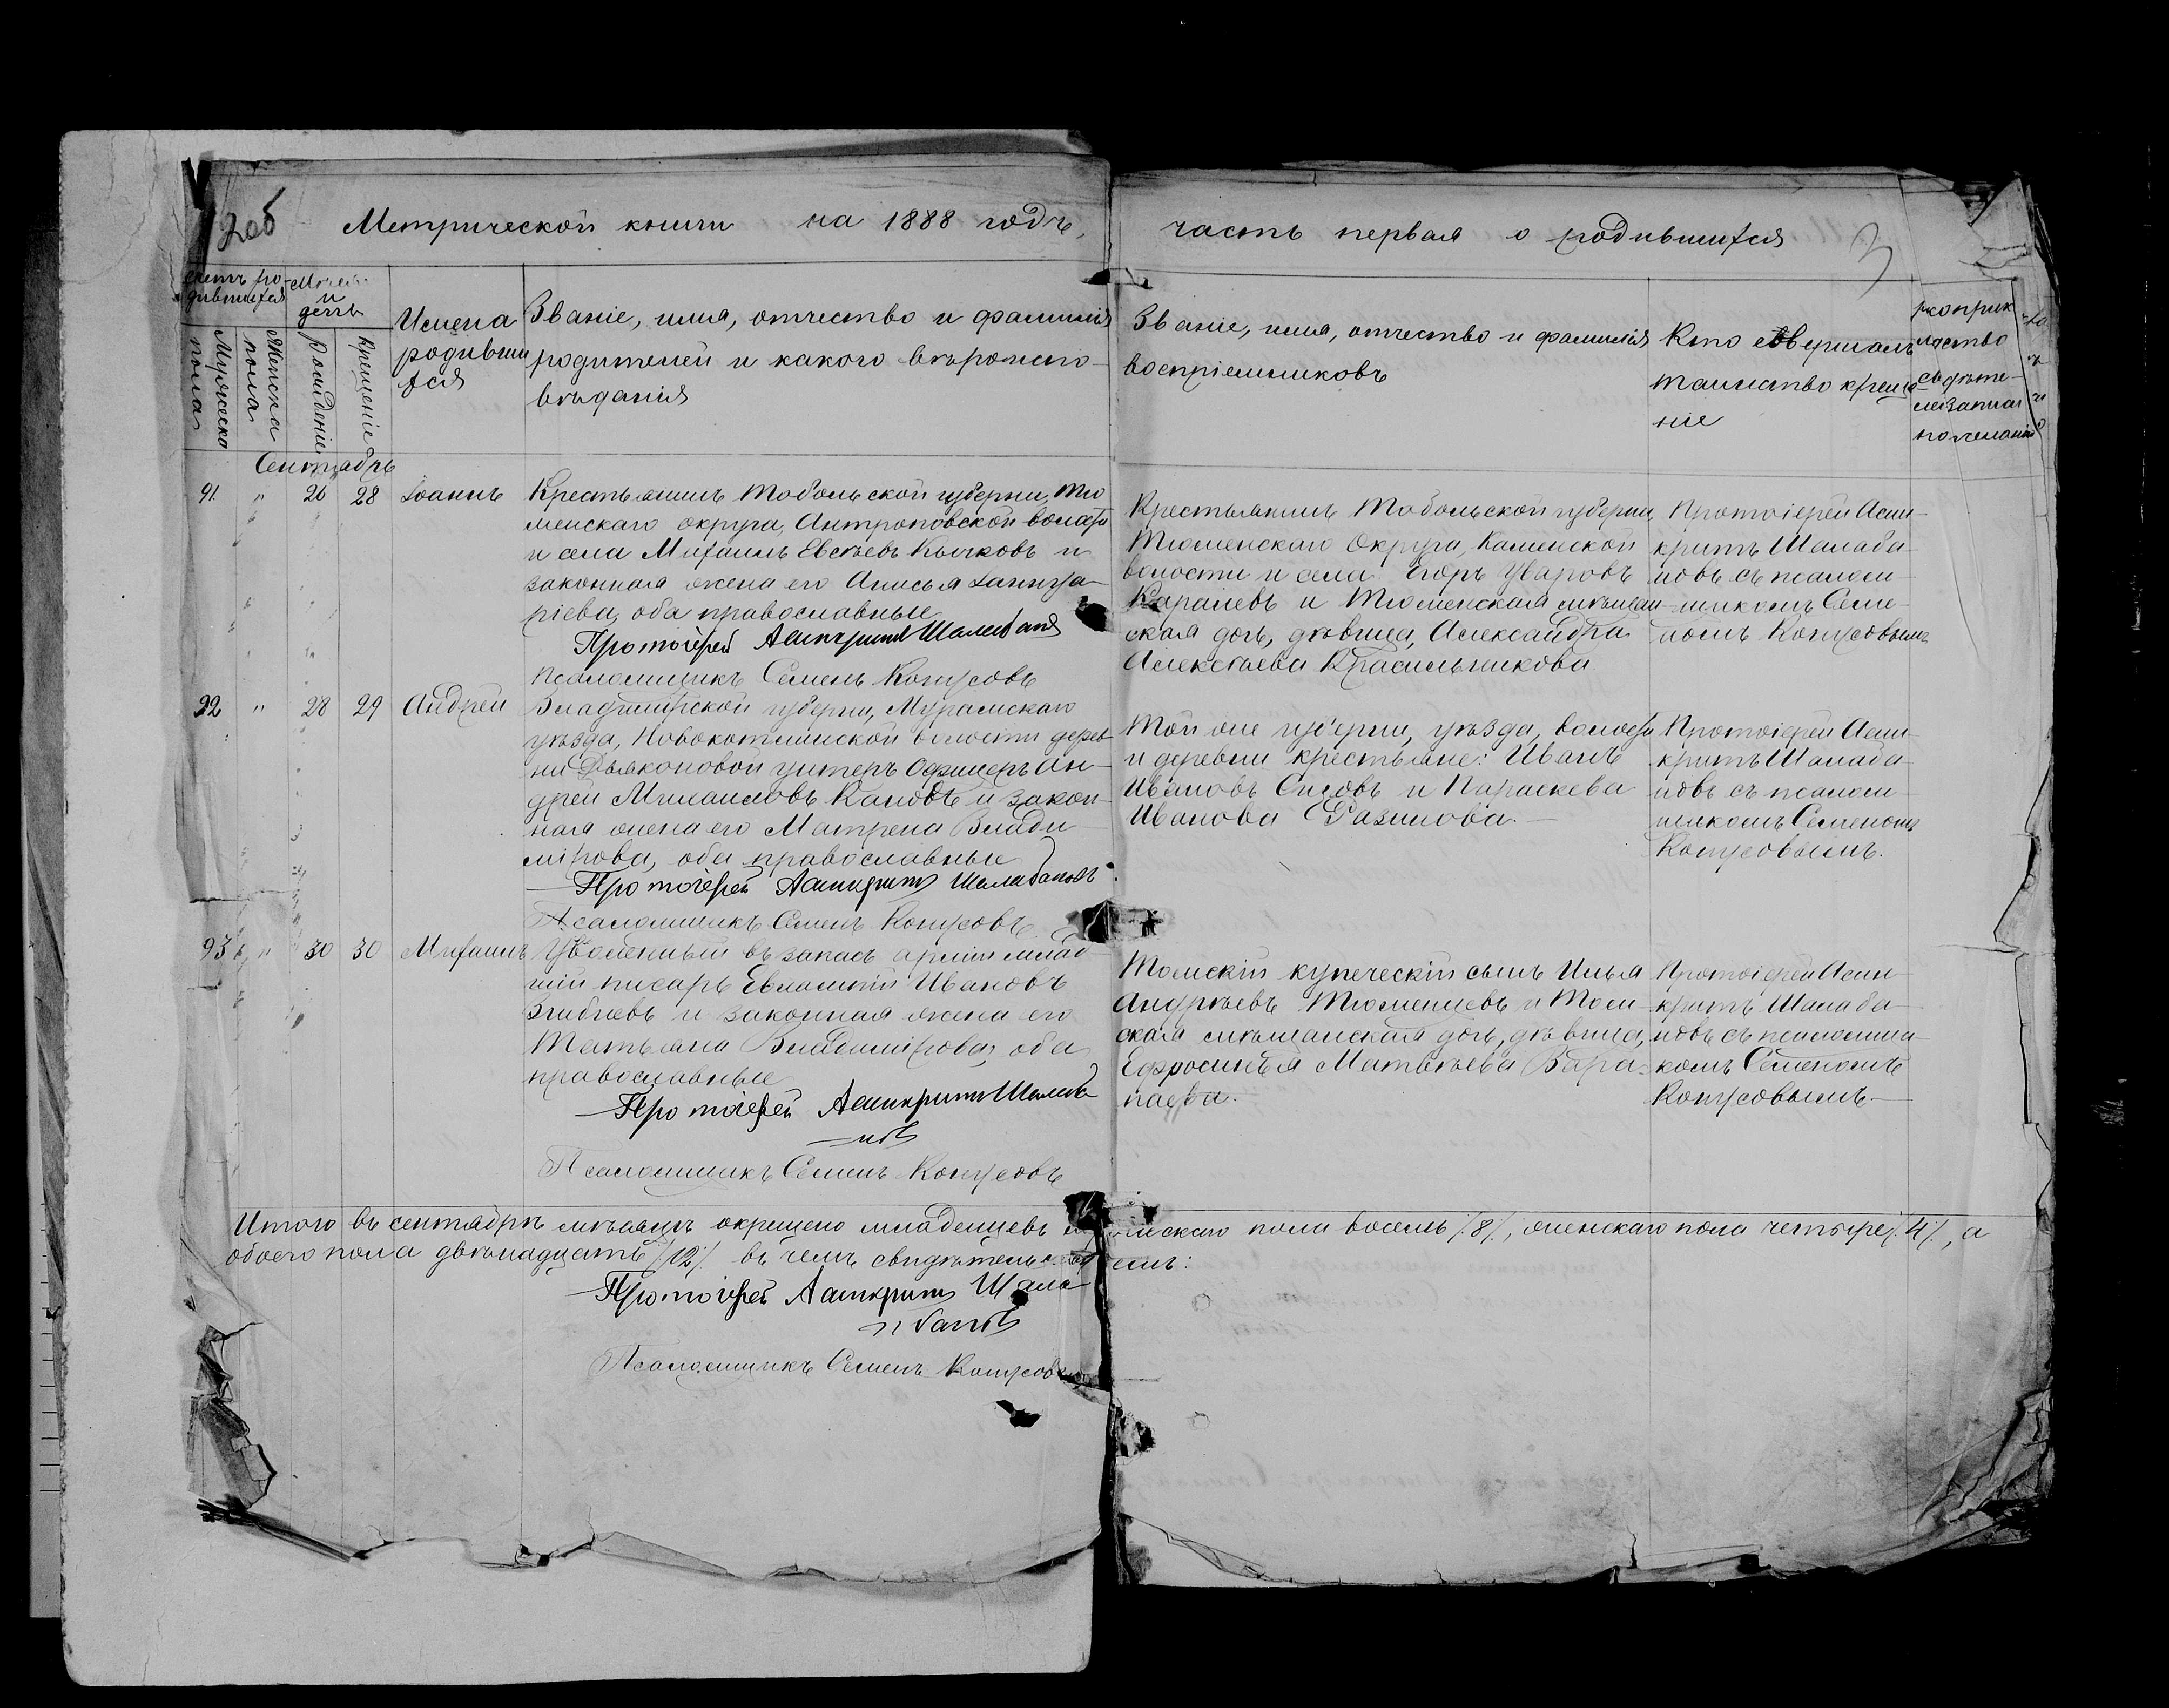 Метрической книги на 1888 годъ,
часть первая о родившихся
3
счетъ ро-
дившихся
Мужеска
пола
Женска
пола
Месяцъ
и
день
Рожденіе
Крещеніе
Имена
родивши
хся
Званіе, имя, отчество и фамилія
родителей и какого вѣроиспо-
вѣданія
Званіе, имя, отчество и фамилія
воспріемниковъ
Кто совершалъ
таинство креще
ніе
рукоприк
ладство
свидѣте-
лей записи
по желанію
Сентябрь
91. " 26 28 Іоаннъ
Крестьянинъ Тобольской губерніи, Тю
менскаго округа, Антроповской волости
и села Михаилъ Евсѣевъ Клычковъ и
законная жена его Анисья Іаннуа-
ріева, оба православные
Протоіерей Асинкритъ Шалабановъ
Псаломщикъ Семенъ Конусовъ
Крестьянинъ Тобольской губерніи,
Тюменскаго Округа, Каменской
волости и села Егоръ Уваровъ
Каралевъ и Тюменская мѣщан-
ская дочь, дѣвица, Александра
Алексѣева Красильникова
Протоіерей Асин-
критъ Шалаба-
новъ съ псалом-
щикомъ Семе-
номъ Конусовымъ
92 " 28 29 Андрей
Владимірской губерніи, Муромскаго
уѣзда, Новокотлицкой волости дерев
ни Дьяконовой унтеръ Офицеръ Ан-
дрей Михаиловъ Кановъ и закон-
ная жена его Матрена Влади
мірова, оба православные
Протоіерей Асинкритъ Шалабановъ
Псаломщикъ Семенъ Конусовъ
Той же губерніи, уѣзда, волости
и деревни крестьяне: Иванъ
Ивановъ Сизовъ и Параскева
Иванова Разинова.
Протоіерей Асин-
критъ Шалаба-
новъ съ псалом-
щикомъ Семеномъ
Конусовымъ.
93 " 30 30 Михаилъ
Уволенный въ запасъ арміи млад-
шій писарь Евлампій Ивановъ
Згибневъ и законная жена его
Татьяна Владимірова, оба
православные
Протоіерей Асинкритъ Шалаба
новъ
Псаломщикъ Семенъ Конусовъ
Томскій купеческій сынъ Илья
Андреевъ Тюменцевъ и Том-
ская мѣщанская дочь, дѣвица,
Ефросинья Матвѣева Вара-
паева.
Протоіерей Асин
критъ Шалаба-
новъ съ псаломщи
комъ Семеномъ
Конусовымъ.
Итого въ сентябрѣ мѣсяцѣ окрещено младенцевъ мужескаго пола восемь /8/, женскаго пола четыре /4/, а
обоего пола двѣнадцать /12/ въ чемъ свидѣтельствуемъ:
Протоіерей Асинкритъ Шала
бановъ
Псаломщикъ Семенъ Конусовъ